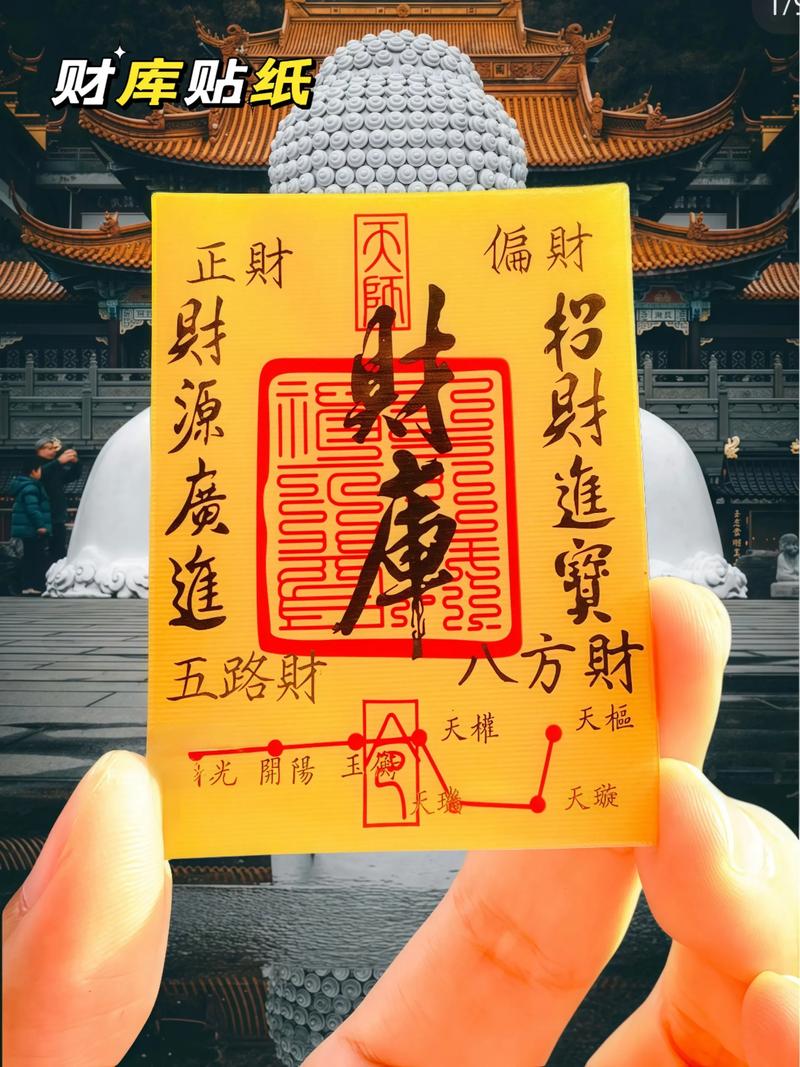 财库贴纸
正財
天師
偏財
財源廣進
財庫
招財進寶
五路財
八方財
天權
天樞
光
開陽
玉衡
令
天璣
天璇